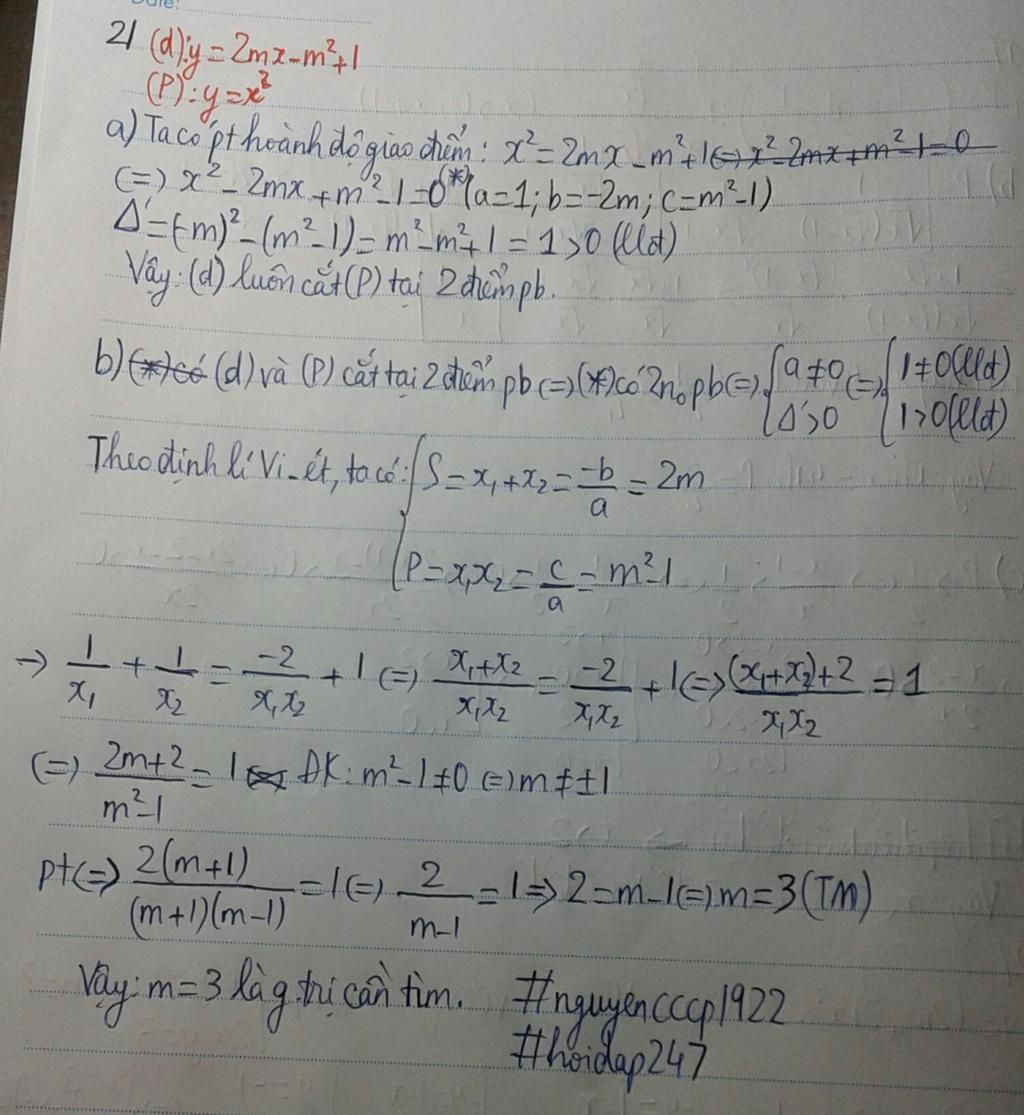 Date:
2/ (d): y = 2mx - m² + 1
(P): y = x²
a) Ta có pt hoành độ giao điểm: x² = 2mx - m² + 1 (=) x² - 2mx + m² - 1 = 0
(=) x² - 2mx + m² - 1 = 0 (*) (a = 1; b = -2m; c = m² - 1)
Δ' = (-m)² - (m² - 1) = m² - m² + 1 = 1 > 0 (llđ)
Vậy: (d) luôn cắt (P) tại 2 điểm pb.
b) (*) có (d) và (P) cắt tại 2 điểm pb (=) (*) có 2 n₀ pb (=) { a ≠ 0 (=) { 1 ≠ 0 (llđ)
Δ' > 0 1 > 0 (llđ)
Theo định lí Vi-ét, ta có: { S = x₁ + x₂ = -b/a = 2m
P = x₁x₂ = c/a = m² - 1
→ 1/x₁ + 1/x₂ = -2/x₁x₂ + 1 (=) x₁+x₂/x₁x₂ = -2/x₁x₂ + 1 (=) (x₁+x₂)+2/x₁x₂ = 1
(=) 2m+2/m²-1 = 1 ĐK: m² - 1 ≠ 0 (=) m ≠ ±1
pt (=) 2(m+1)/(m+1)(m-1) = 1 (=) 2/m-1 = 1 => 2 = m - 1 (=) m = 3 (TM)
Vậy: m = 3 là g.trị cần tìm. #nguyencccp1922
#hoidap247